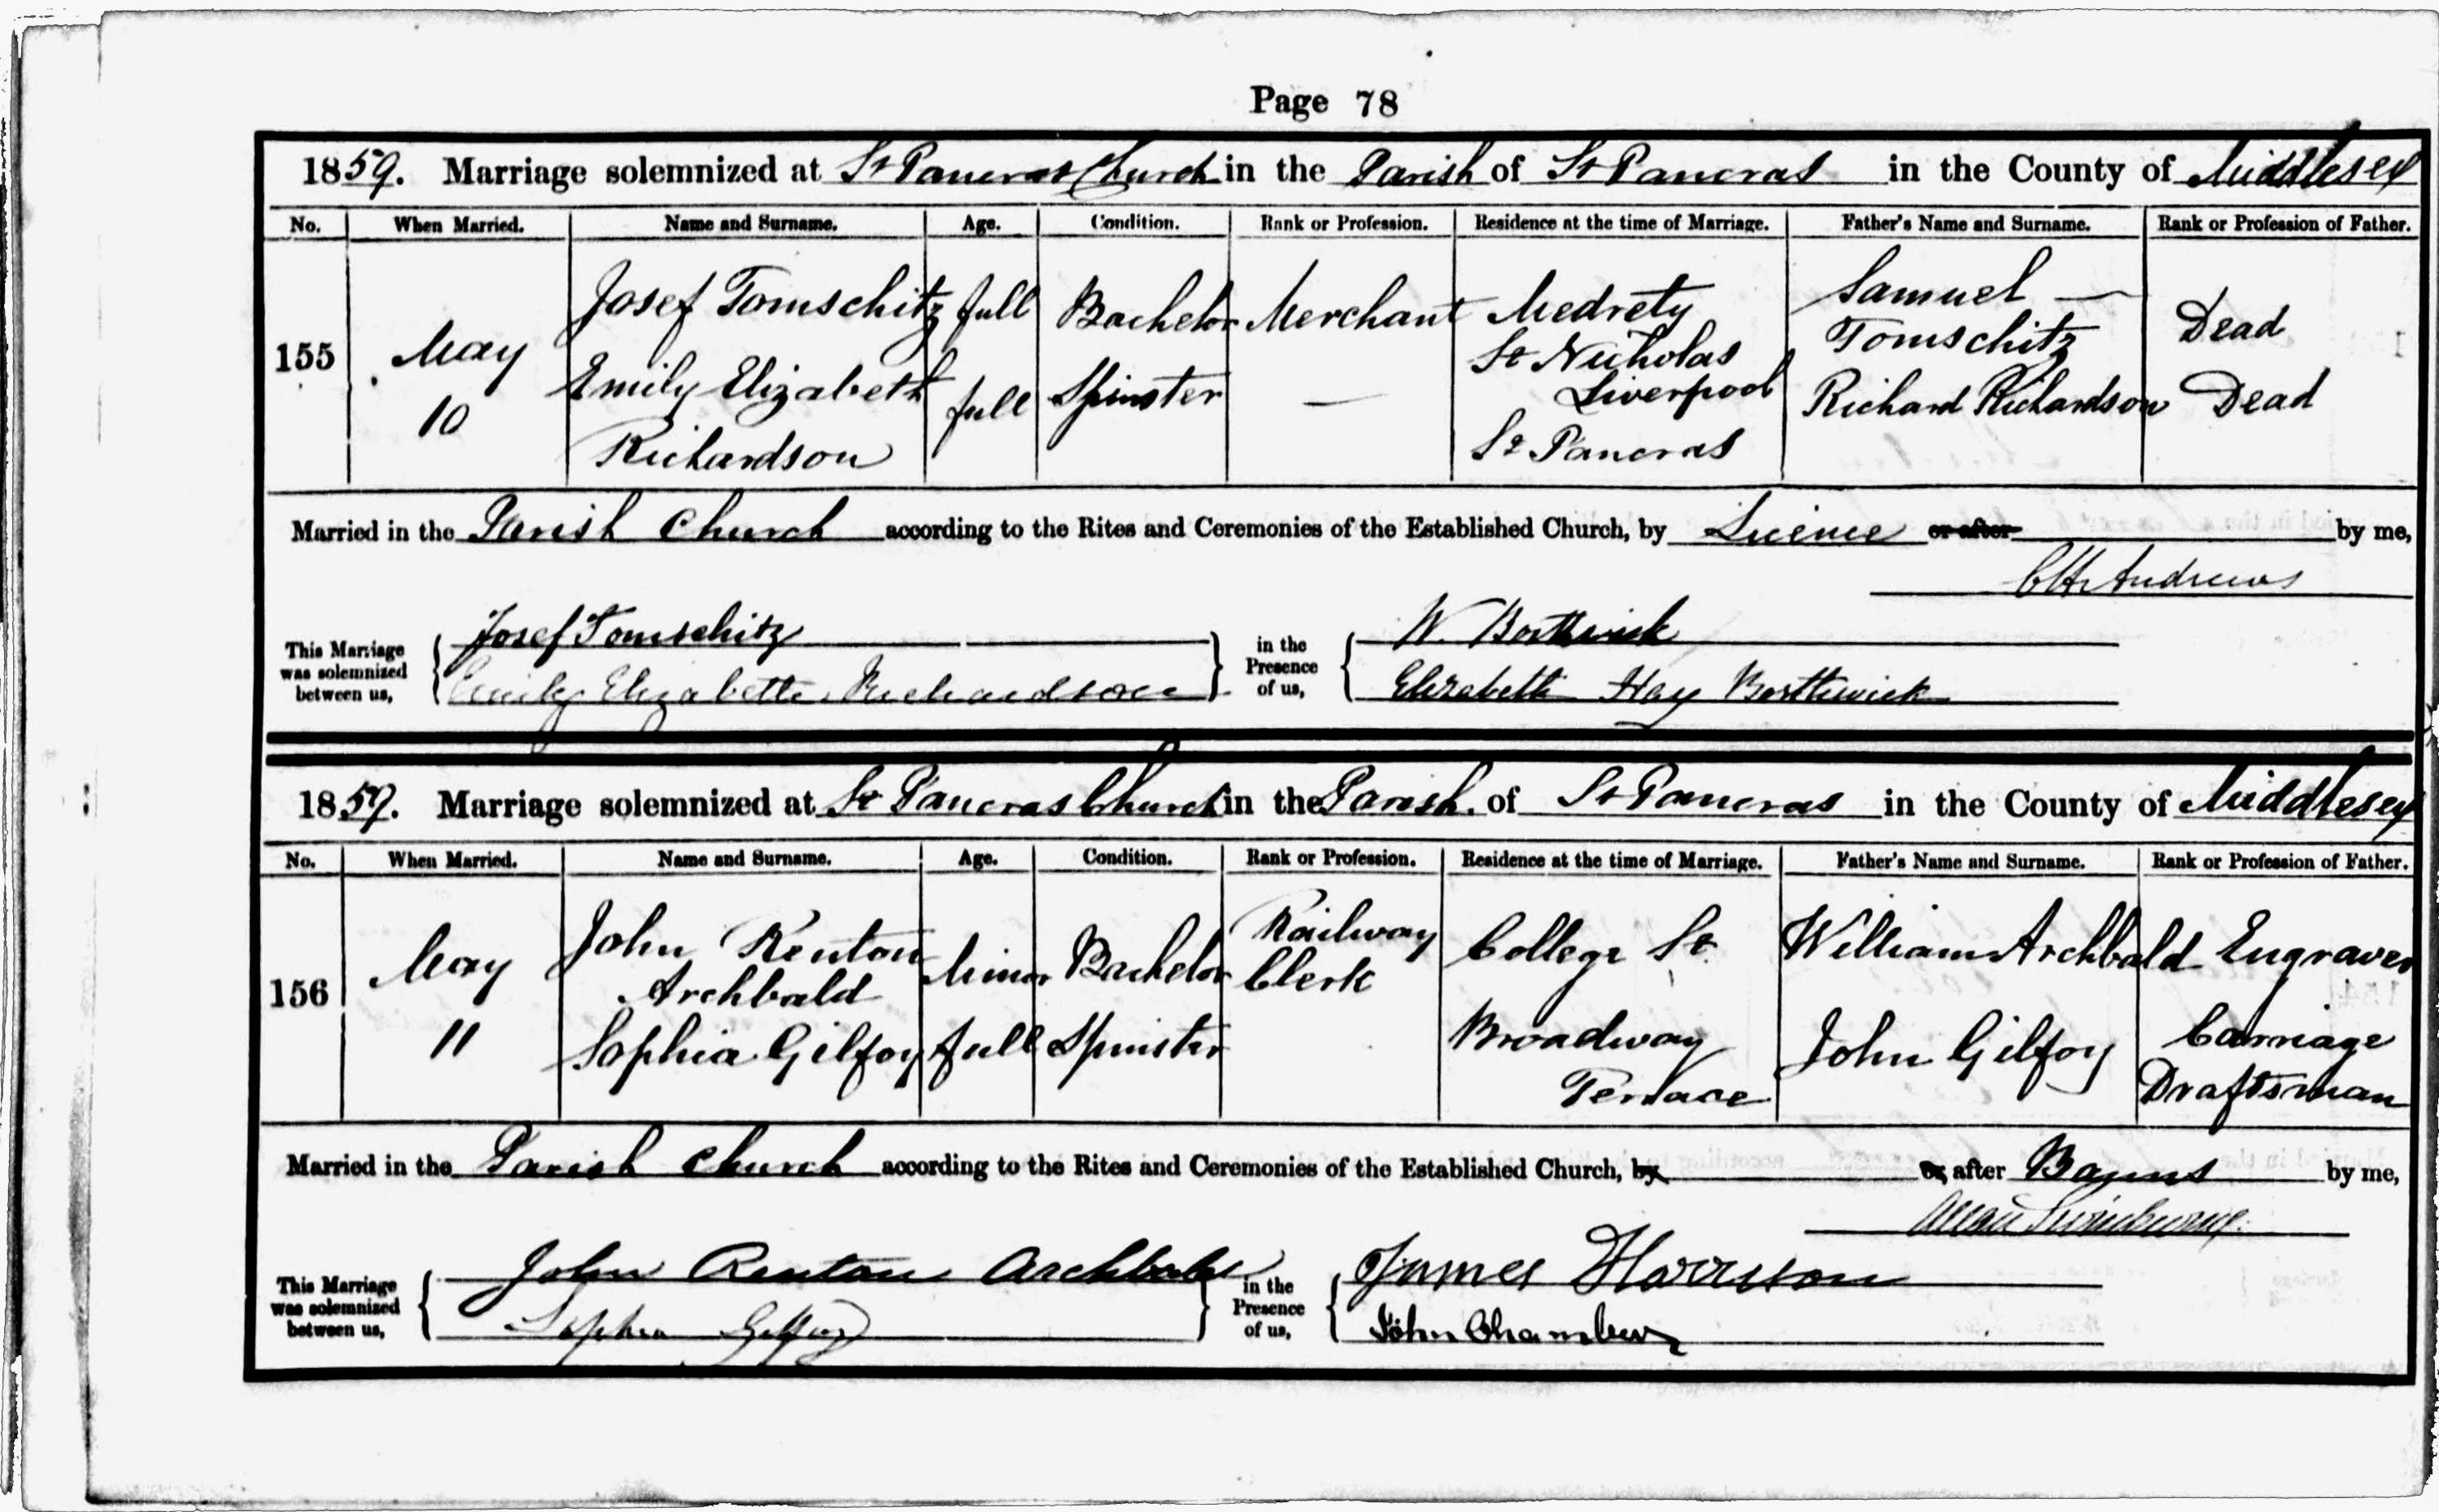 Page 78
1859. Marriage solemnized at St Pancras Church in the Parish of St Pancras in the County of Middlesex
No. When Married. Name and Surname. Age. Condition. Rank or Profession. Residence at the time of Marriage. Father's Name and Surname. Rank or Profession of Father.
155 May 10 Josef Tomschitz full Bachelor Merchant St Nicholas Liverpool Samuel Tomschitz Dead
Emily Elizabeth Richardson full Spinster — St Pancras Richard Richardson Dead
Married in the Parish Church according to the Rites and Ceremonies of the Established Church, by Licence or after by me,
Andrews
This Marriage was solemnized between us, Josef Tomschitz in the Presence of us, W. Borthwick
Emily Elizabeth Richardson Elizabeth Hay Borthwick
1859. Marriage solemnized at St Pancras Church in the Parish of St Pancras in the County of Middlesex
No. When Married. Name and Surname. Age. Condition. Rank or Profession. Residence at the time of Marriage. Father's Name and Surname. Rank or Profession of Father.
156 May 11 John Renton Archbald Minor Bachelor Railway Clerk College St. William Archbald Engraver
Sophia Gilfoy full Spinster Broadway Terrace John Gilfoy Carriage Draftsman
Married in the Parish Church according to the Rites and Ceremonies of the Established Church, by or after Banns by me,
This Marriage was solemnized between us, John Renton Archbald in the Presence of us, James Harrison
Sophia Gilfoy John Chambers